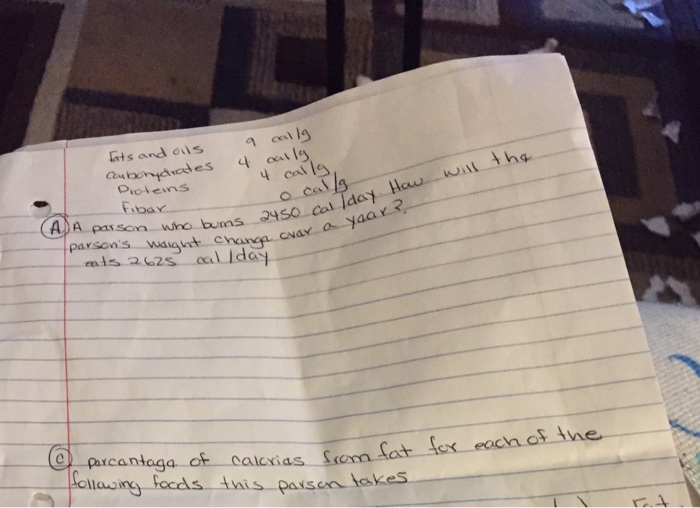 Fats and oils 9 cal/g
Carbohydrates 4 cal/g
Proteins 4 cal/g
Fibar 0 cal/g
(A) A parson who burns 2450 cal/day. How will the
parson's waight changa ovar a yaar?
eats 2625 cal/day
(C) parcantaga of calorias from fat for each of the
following foods this parson takes
Fat